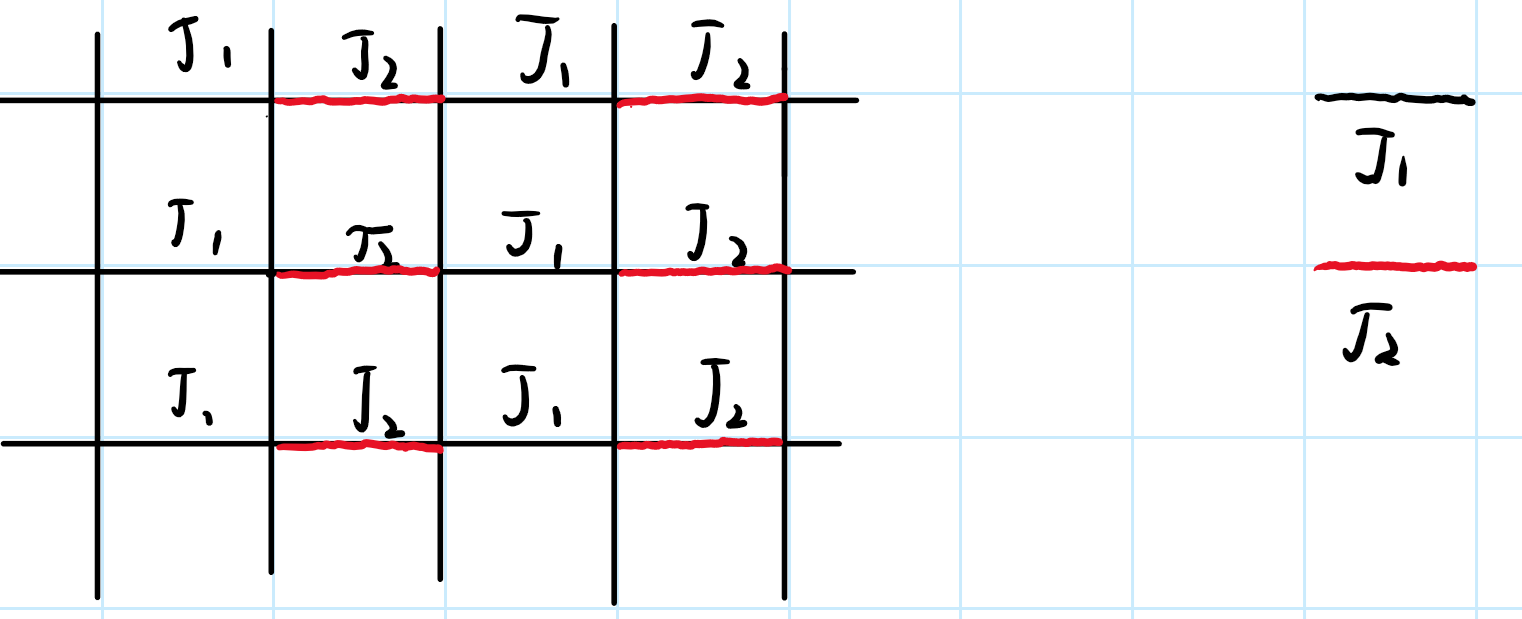 J₁ J₂ J₁ J₂
J₁
J₁ J₂ J₁ J₂
J₂
J₁ J₂ J₁ J₂